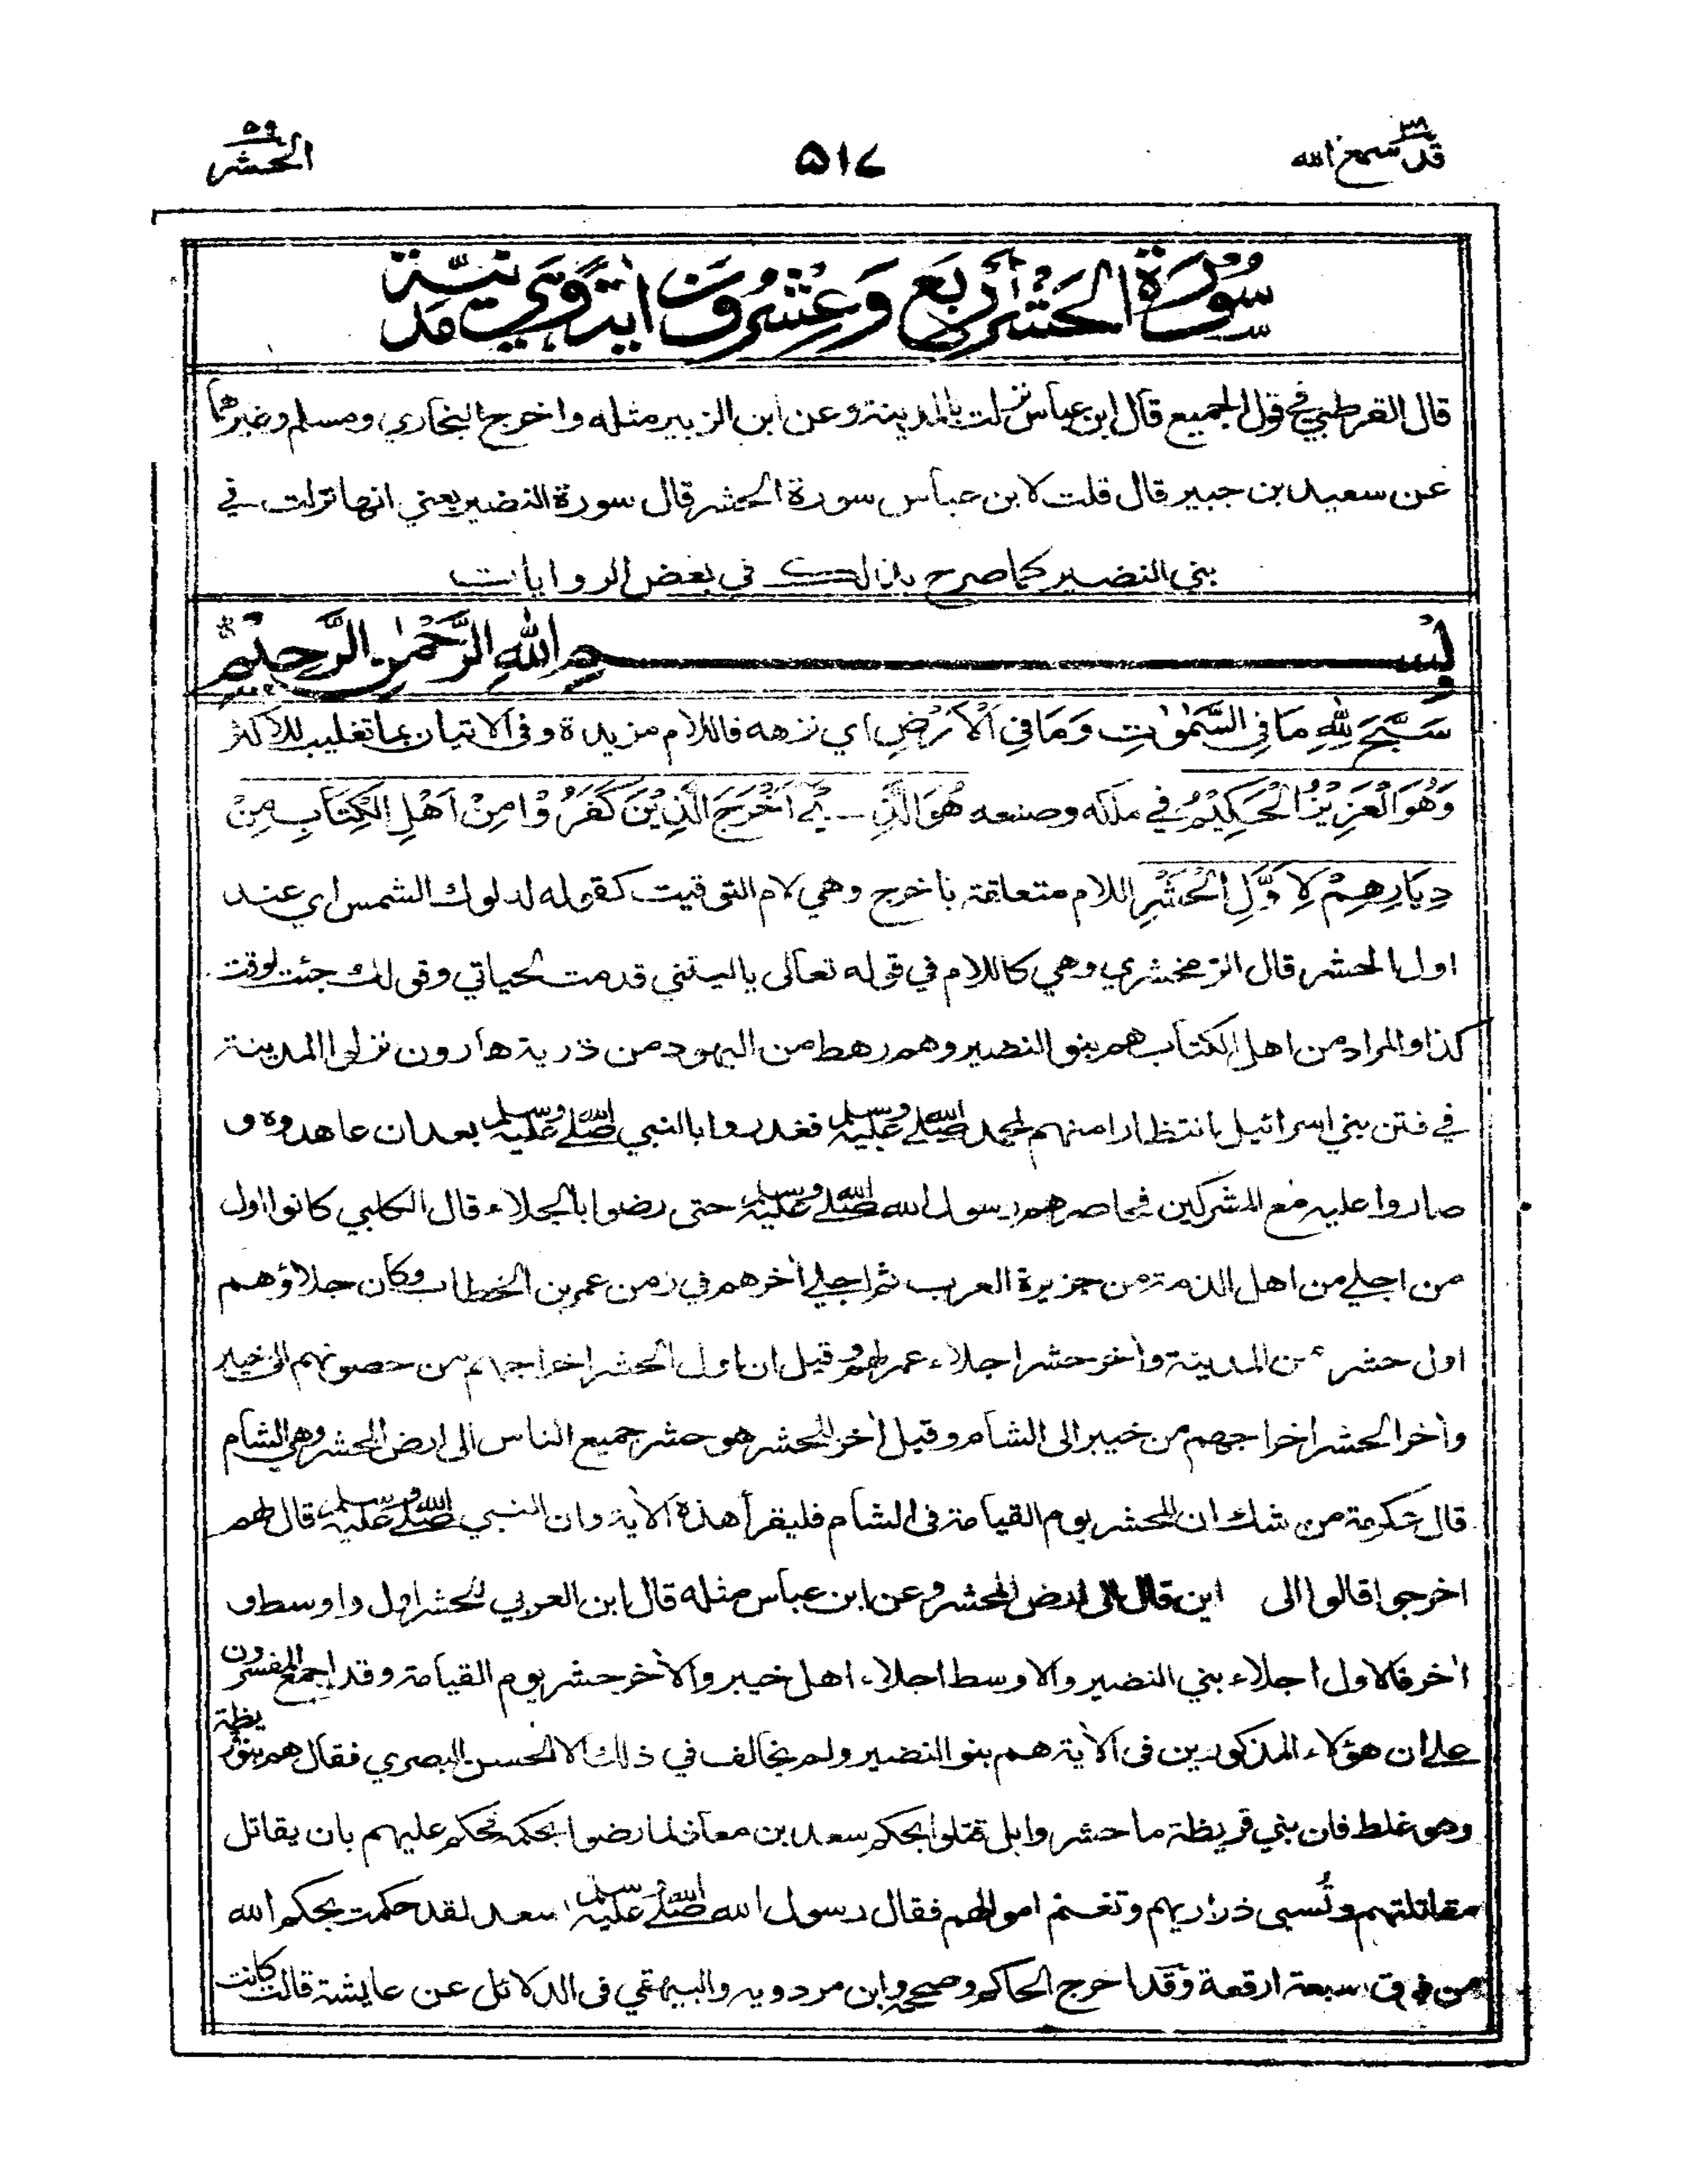 قد سمع الله ٢٨
٥١٧
الحشر ٥٩
سُوْرَةُ الحَشْرِ أَرْبَع وَعِشْرُونَ اٰيَةً وَهِيَ مَدَنِيَّة
قال القرطبي في قول الجميع قال ابن عباس نزلت بالمدينة وعن ابن الزبير مثله واخرج البخاري ومسلم وغيرهما
عن سعيد بن جبير قال قلت لابن عباس سورة الحشر قال سورة النضير يعني انها نزلت في
بني النضير كما صرح بذلك في بعض الروايات
بِسْمِ اللهِ الرَّحْمٰنِ الرَّحِيْمِ
سَبَّحَ لِلّٰهِ مَا فِي السَّمٰوٰتِ وَمَا فِي الْاَرْضِ اي نزهه فاللام مزيدة وفى الاتيان بما تغليب للاكثر
وَهُوَ الْعَزِيْزُ الْحَكِيْمُ في ملكه وصنعه هُوَ الَّذِيْ اَخْرَجَ الَّذِيْنَ كَفَرُوْا مِنْ اَهْلِ الْكِتَابِ مِنْ
دِيَارِهِمْ لِاَوَّلِ الْحَشْرِ اللام متعلقة باخرج وهي لام التوقيت كقوله لدلوك الشمس اي عند
اول الحشر قال الزمخشري وهي كاللام في قوله تعالى ياليتني قدمت لحياتي وقولك جئت لوقت
كذا والمراد من اهل الكتاب هم بنو النضير وهم رهط من اليهود من ذرية هارون نزلوا المدينة
في فتن بني اسرائيل انتظارا منهم لمحمد صلى الله عليه وسلم فغدروا بالنبي صلى الله عليه وسلم بعد ان عاهدوه و
صاروا عليه مع المشركين فحاصرهم رسول الله صلى الله عليه وسلم حتى رضوا بالجلاء قال الكلبي كانوا اول
من اجلي من اهل الذمة من جزيرة العرب ثم اجلي اٰخرهم في زمن عمر بن الخطاب وكان جلاؤهم
اول حشر من المدينة واٰخر حشر اجلاء عمر لهم وقيل ان اول الحشر اخراجهم من حصونهم الى خيبر
واٰخر الحشر اخراجهم من خيبر الى الشام وقيل اٰخر الحشر هو حشر جميع الناس الى ارض المحشر وهي الشام
قال عكرمة من شك ان المحشر يوم القيامة فى الشام فليقرأ هذه الاٰية وان النبي صلى الله عليه وسلم قال لهم
اخرجوا قالوا الى اين قال الى ارض المحشر وعن ابن عباس مثله قال ابن العربي للحشر اول واوسط و
اٰخر فالاول اجلاء بني النضير والاوسط اجلاء اهل خيبر والاٰخر حشر يوم القيامة وقد اجمع المفسرون
على ان هؤلاء المذكورين فى الاٰية هم بنو النضير ولم يخالف في ذلك الا الحسن البصري فقال هم بنو قريظة
وهو غلط فان بني قريظة ما حشروا بل قتلوا بحكم سعد بن معاذ لما رضوا بحكمه فحكم عليهم بان يقاتل
مقاتلتهم وتُسبى ذراريهم وتغنم اموالهم فقال رسول الله صلى الله عليه وسلم لسعد لقد حكمت بحكم الله
من فوق سبعة ارقعة وقد اخرج الحاكم وصححه وابن مردويه والبيهقي فى الدلائل عن عايشة قالت كانت